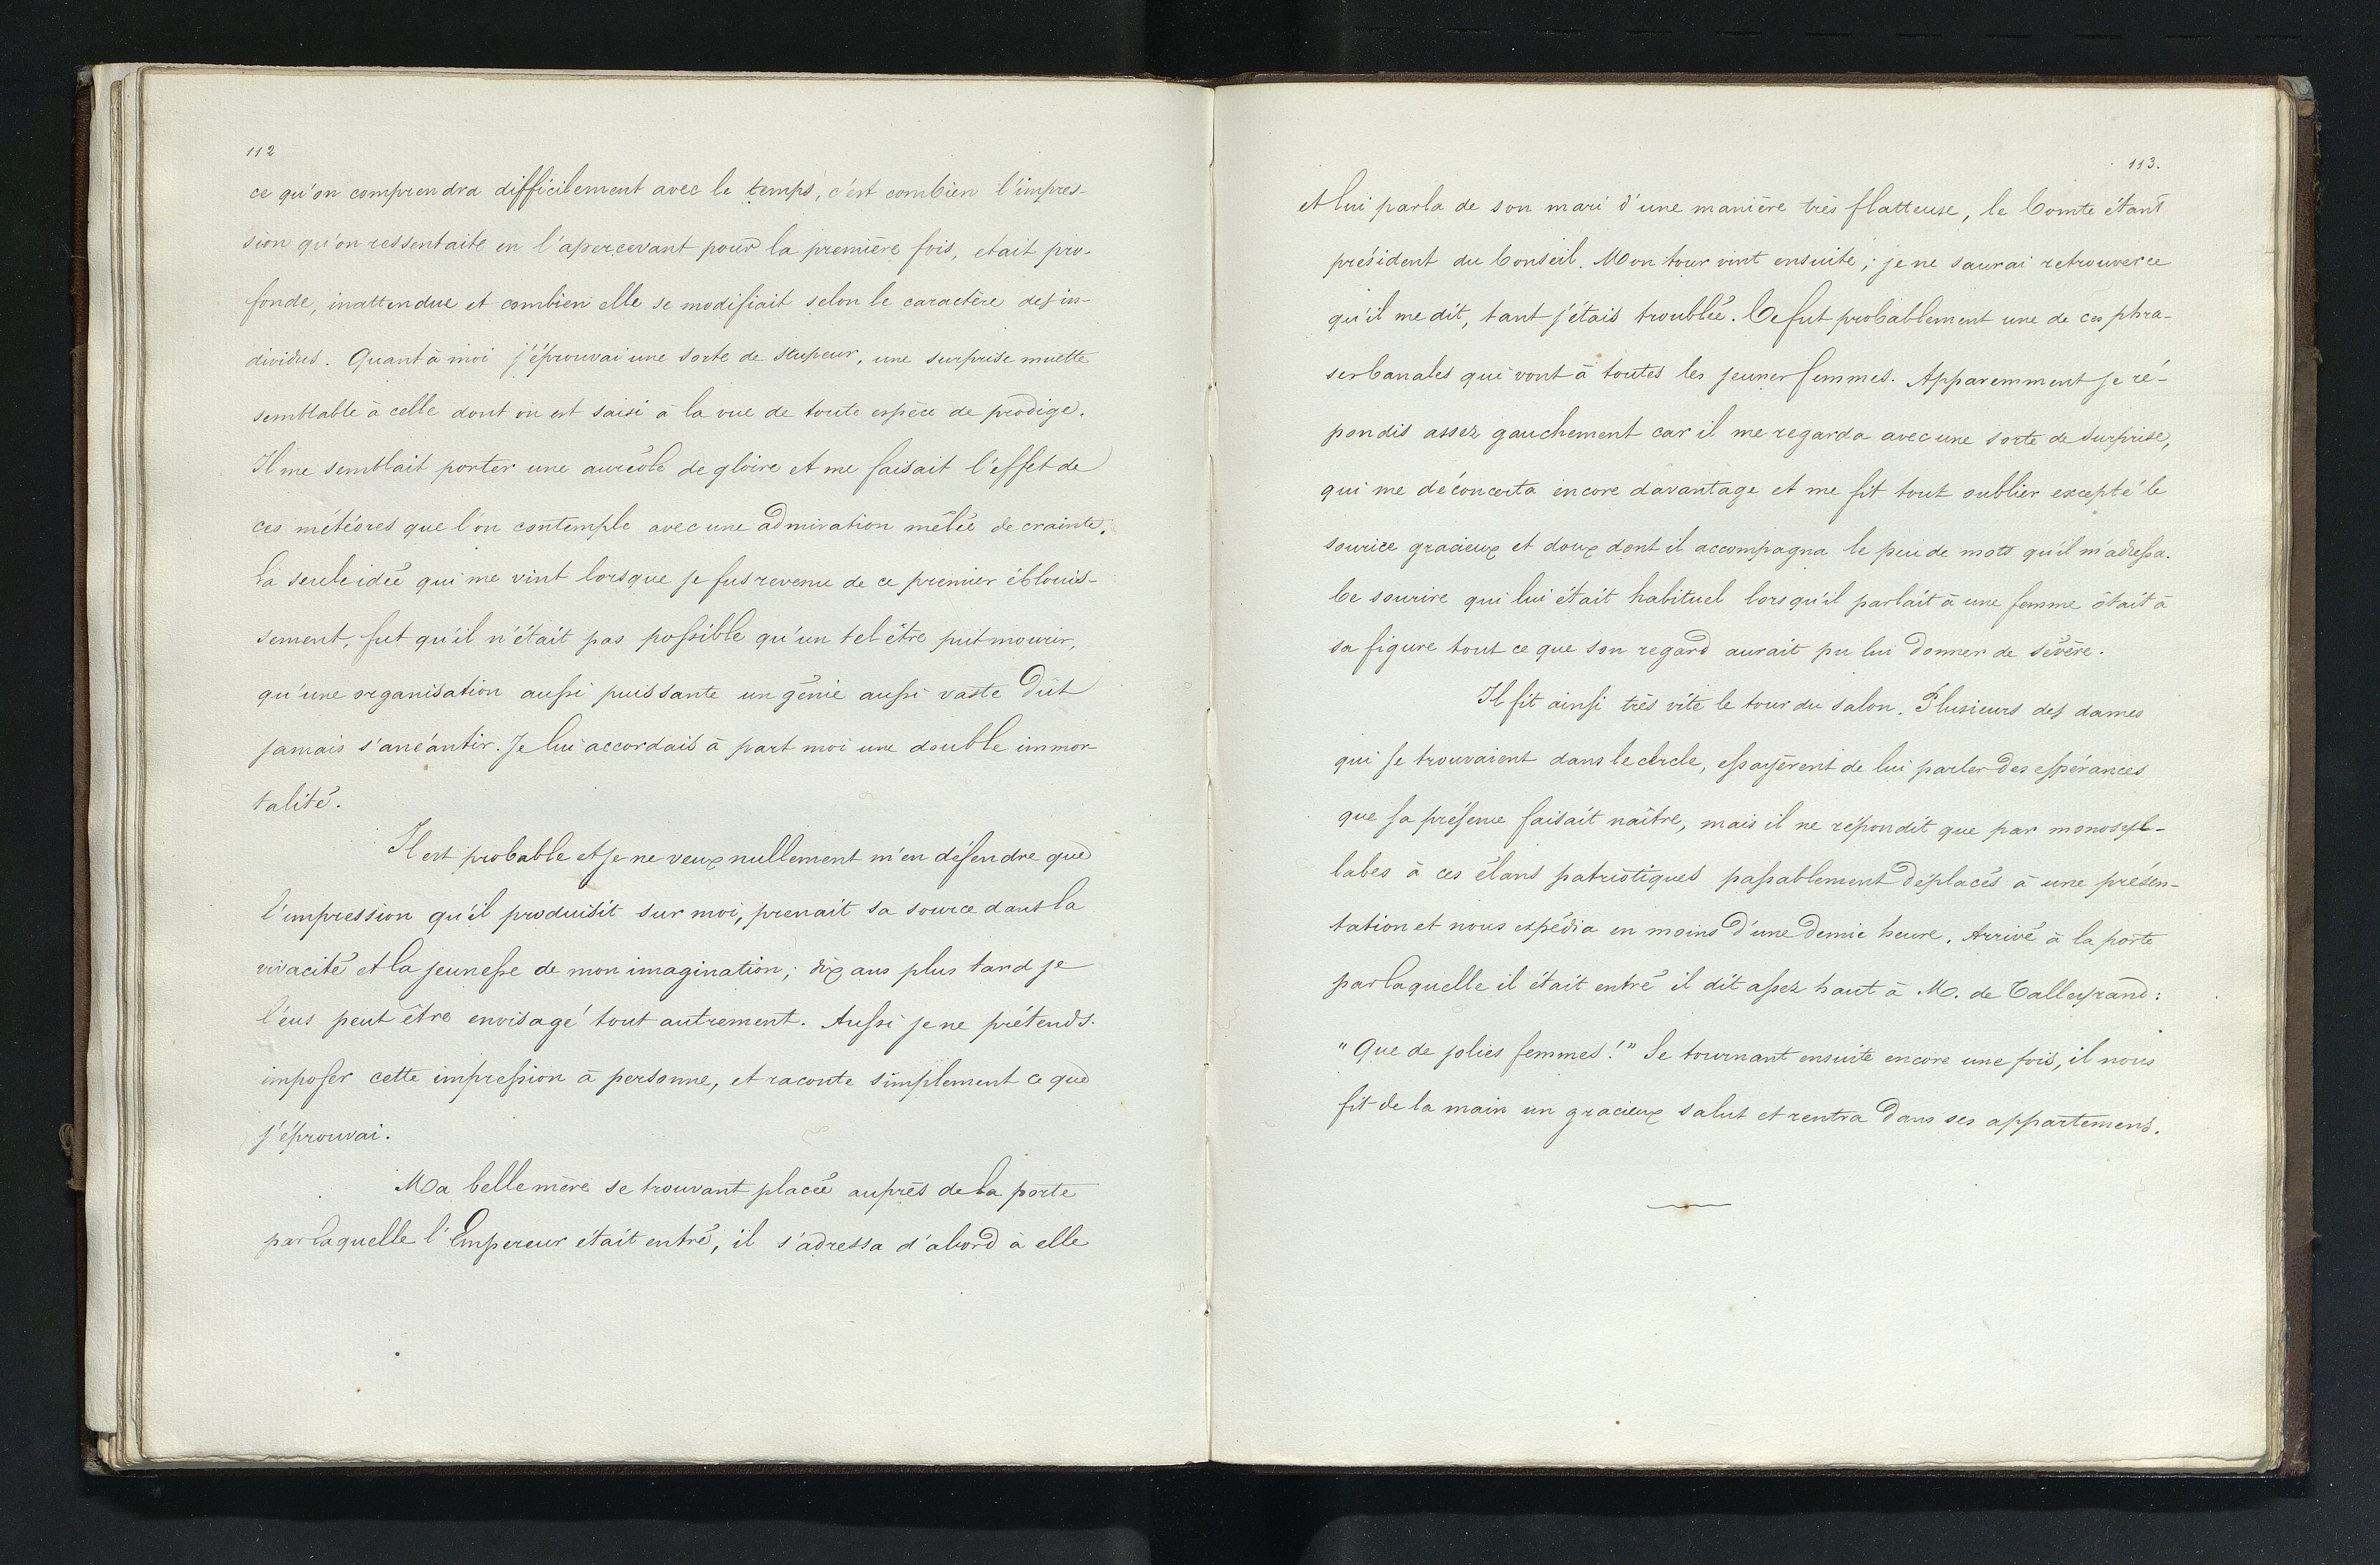 112
ce qu'on comprendra difficilement avec le temps, c'est combien l'impres-
sion qu'on ressentaite en l'apercevant pour la première fois, était pro-
fonde, inattendue et combien elle se modifiait selon le caractère des in-
dividus. Quant à moi j'éprouvai une sorte de stupeur, une surprise muette
semblable à celle dont on est saisi à la vue de toute espèce de prodige.
Il me semblait porter une auréole de gloire et me faisait l'effet de
ces météores que l'on contemple avec une admiration mêlée de crainte.
La seule idée qui me vint lorsque je fus revenue de ce premier éblouis-
sement, fut qu'il n'était pas possible qu'un tel être pût mourir,
qu'une organisation aussi puissante un génie aussi vaste dût
jamais s'anéantir. Je lui accordais à part moi une double immor-
talité.
Il est probable et je ne veux nullement m'en défendre que
l'impression qu'il produisit sur moi, prenait sa source dans la
vivacité et la jeunesse de mon imagination; dix ans plus tard je
l'eus peut être envisagé tout autrement. Aussi je ne prétends
imposer cette impression à personne, et raconte simplement ce que
j'éprouvai.
Ma belle mère se trouvant placée auprès de la porte
par laquelle l'Empereur était entré, il s'adressa d'abord à elle
113.
et lui parla de son mari d'une manière très flatteuse, le Comte étant
président du Conseil. Mon tour vint ensuite; je ne saurai retrouver ce
qu'il me dit, tant j'étais troublée. Ce fut probablement une de ces phra-
ses banales qui vont à toutes les jeunes femmes. Apparemment je ré-
pondis assez gauchement car il me regarda avec une sorte de surprise,
qui me déconcerta encore davantage et me fit tout oublier excepté le
sourire gracieux et doux dont il accompagna le peu de mots qu'il m'adressa.
Ce sourire qui lui était habituel lorsqu'il parlait à une femme ôtait à
sa figure tout ce que son regard aurait pu lui donner de sévère.
Il fit ainsi très vite le tour du salon. Plusieurs des dames
qui se trouvaient dans le cercle, essayèrent de lui parler des espérances
que sa présence faisait naître, mais il ne répondit que par monosyl-
labes à ces élans patriotiques passablement déplacés à une présen-
tation et nous expédia en moins d'une demie heure. Arrivé à la porte
par laquelle il était entré il dit assez haut à M. de Talleyrand:
"Que de jolies femmes!" Se tournant ensuite encore une fois, il nous
fit de la main un gracieux salut et rentra dans ses appartemens.